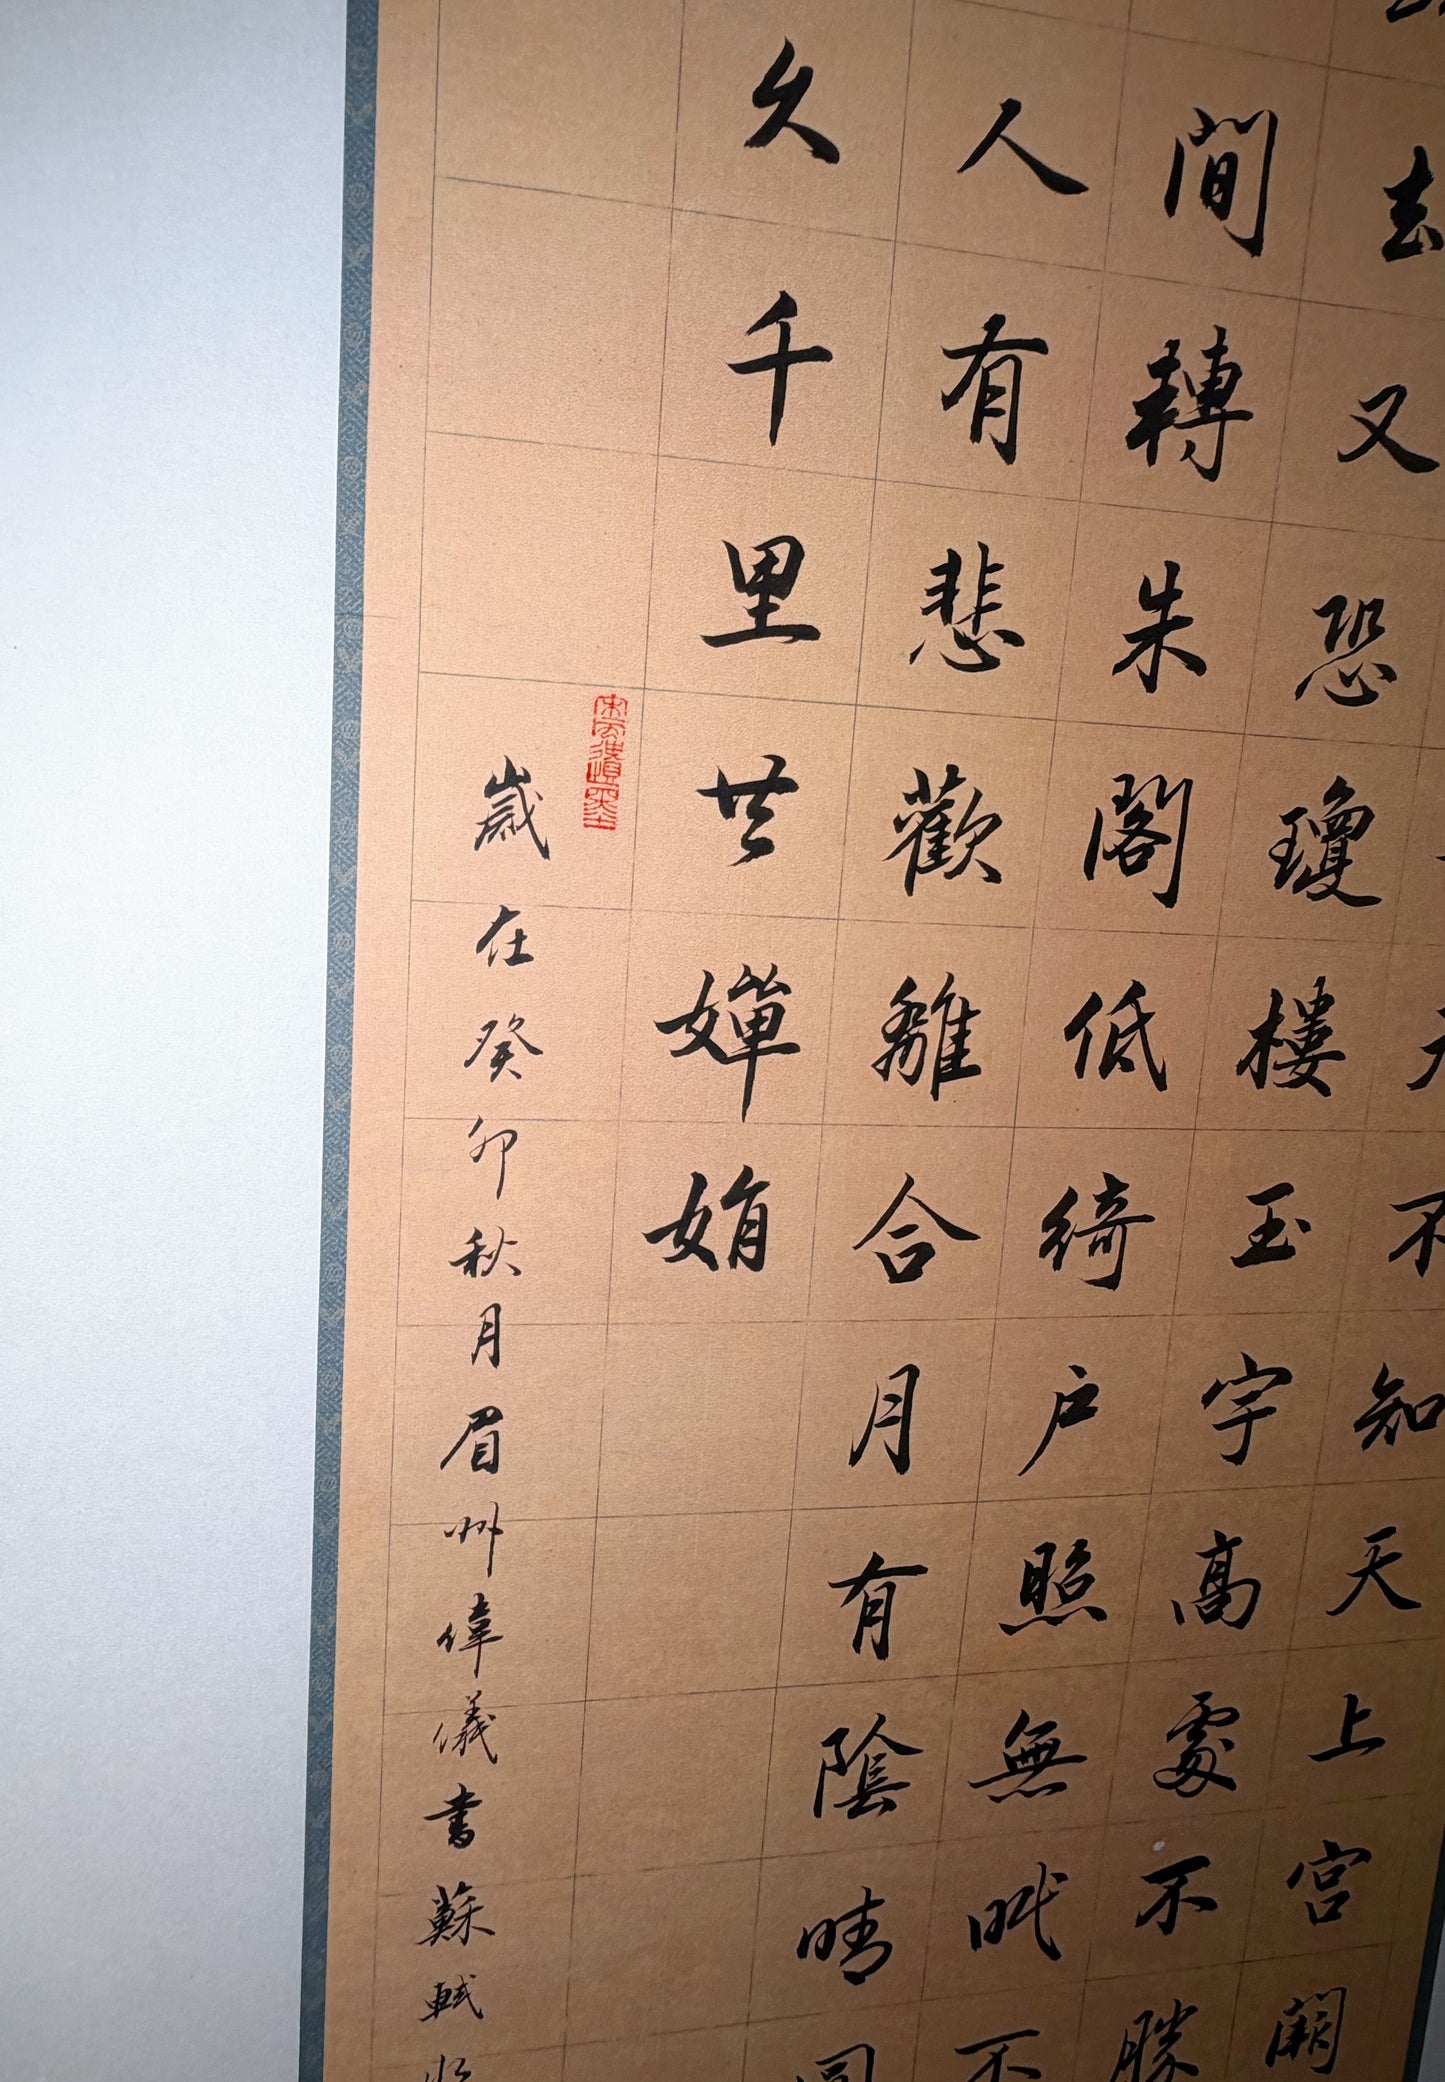 天不知天上宮闕
去又恐瓊樓玉宇高處不勝
間轉朱閣低綺户照無眠不
人有悲歡離合月有陰晴圓
久千里共嬋娟
歲在癸卯秋月眉州偉儀書蘇軾